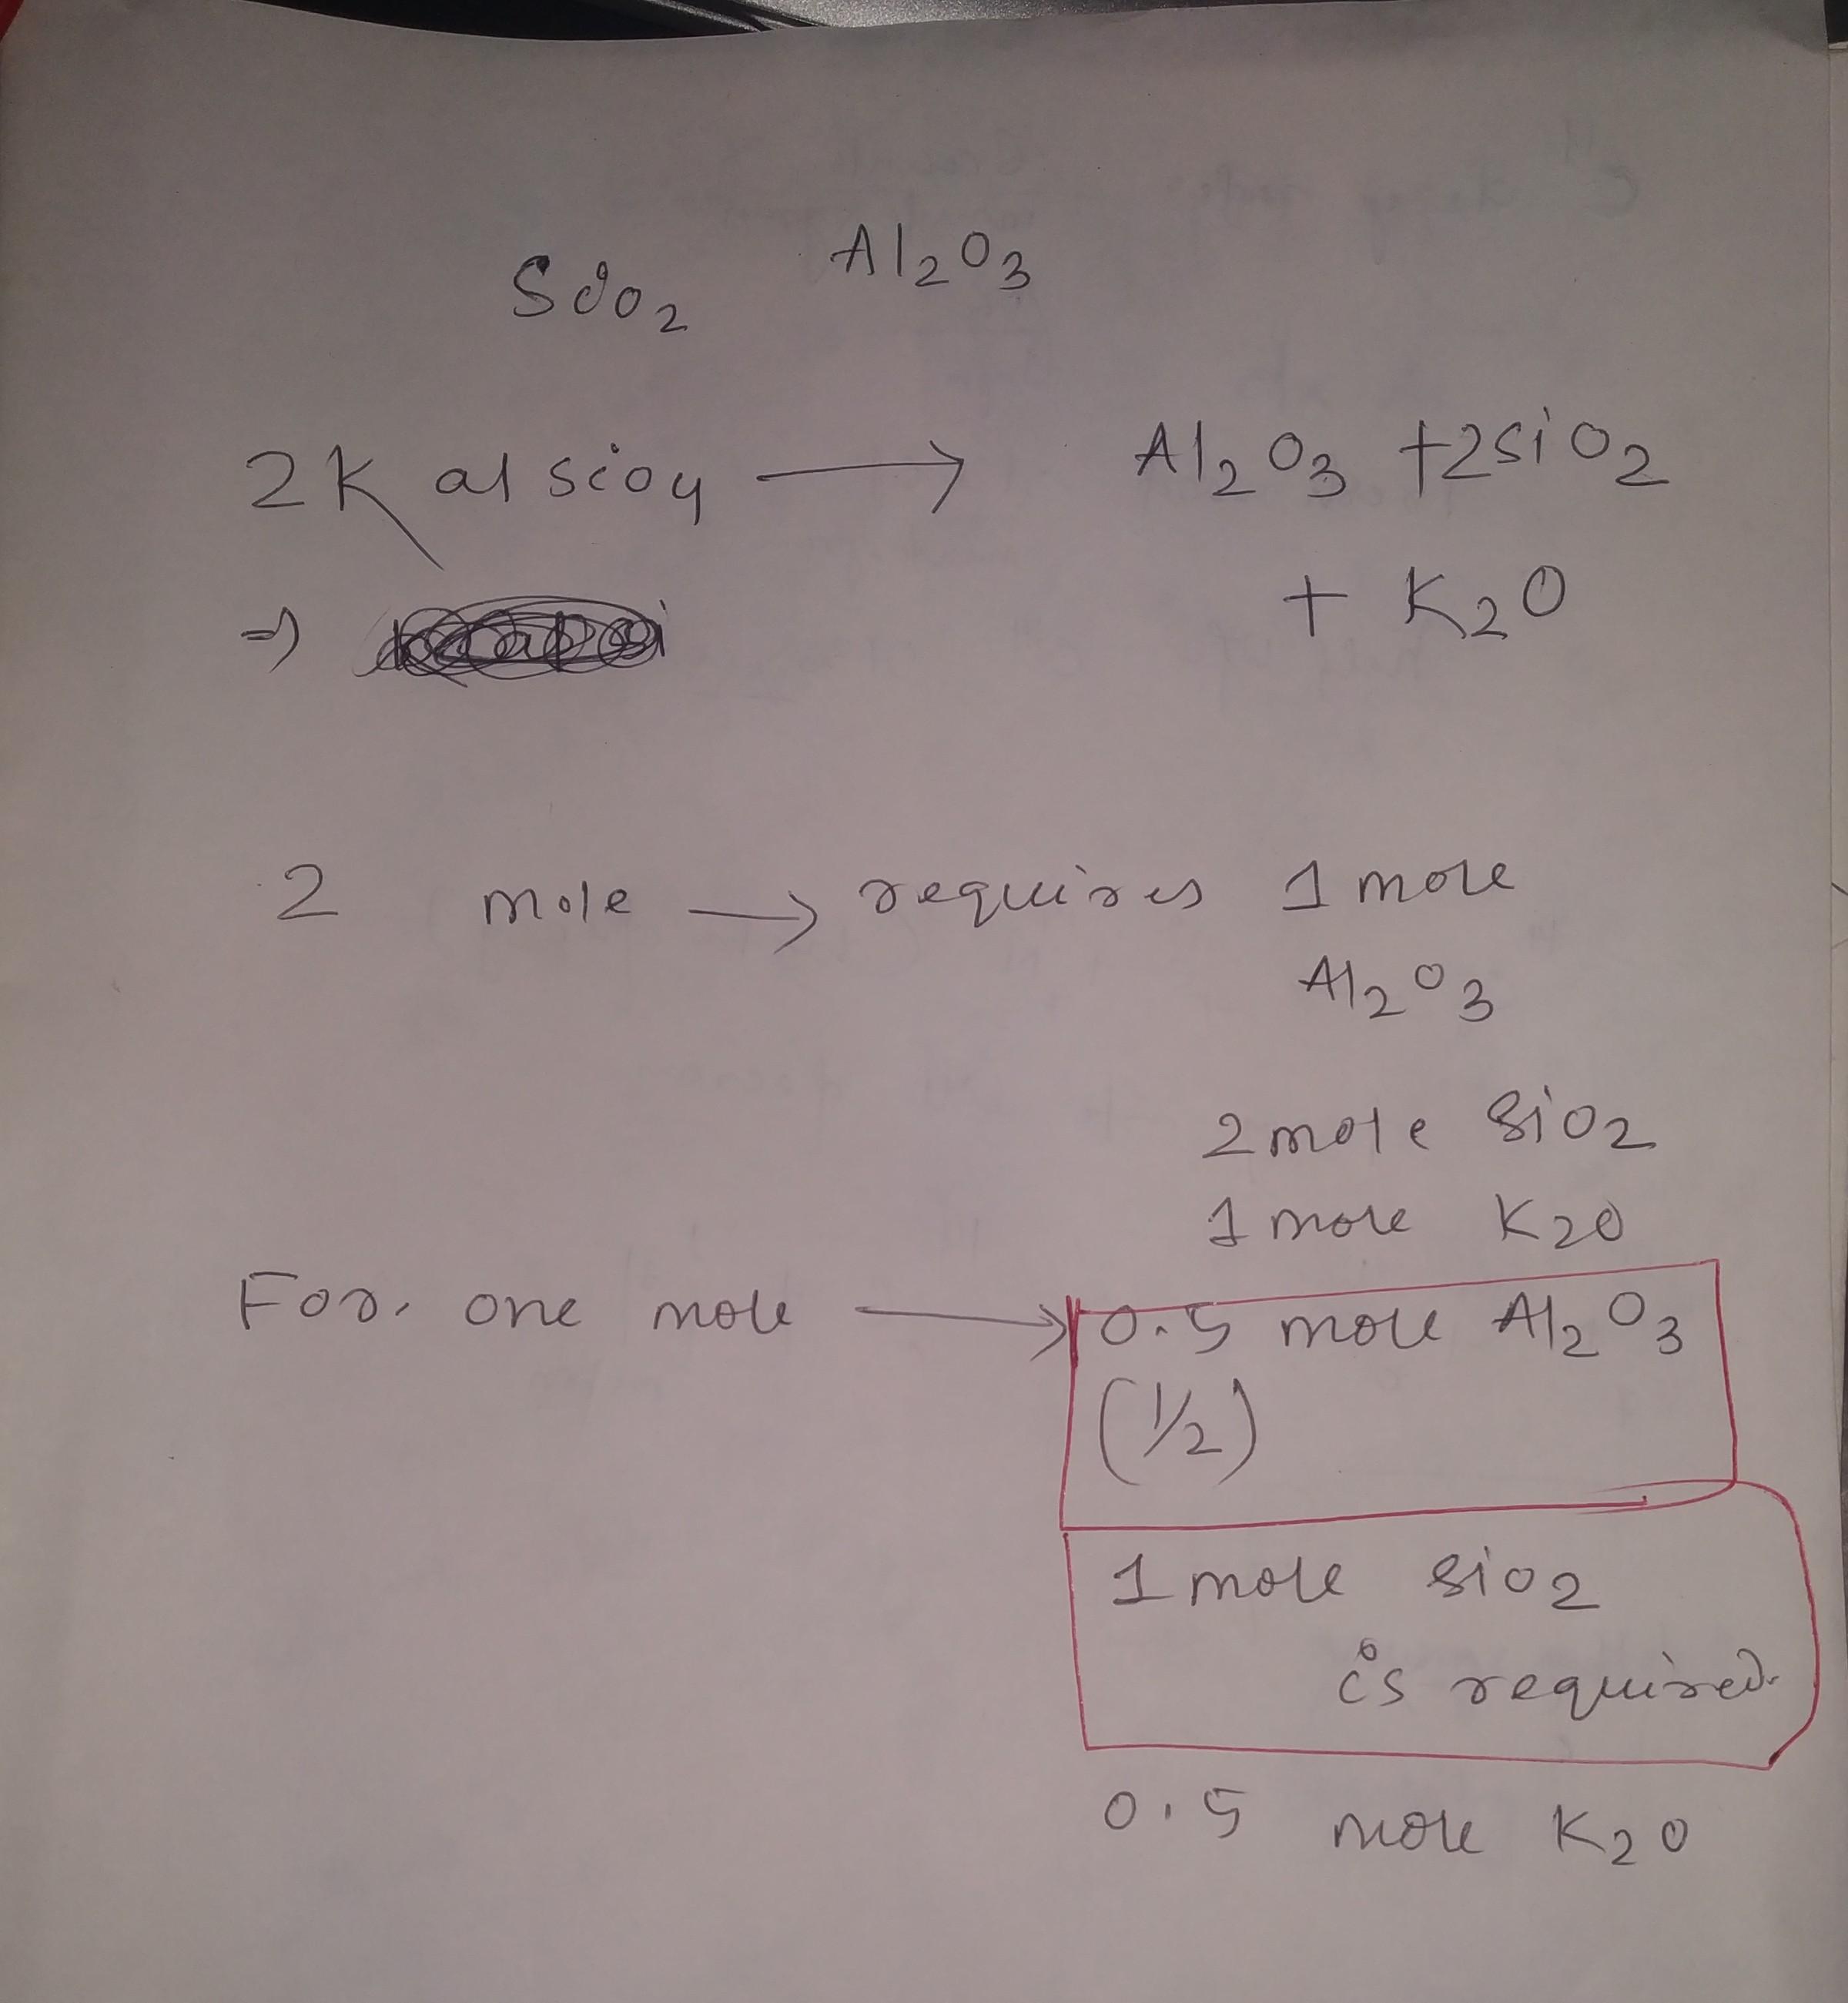 Al₂O₃
SiO₂
2K al sio₄ → Al₂O₃ + 2SiO₂
+ K₂O
⇒
2 mole → requires 1 mole
Al₂O₃
2 mole SiO₂
1 mole K₂O
For one mole → 0.5 mole Al₂O₃
(1/2)
1 mole SiO₂
is required.
0.5 mole K₂O